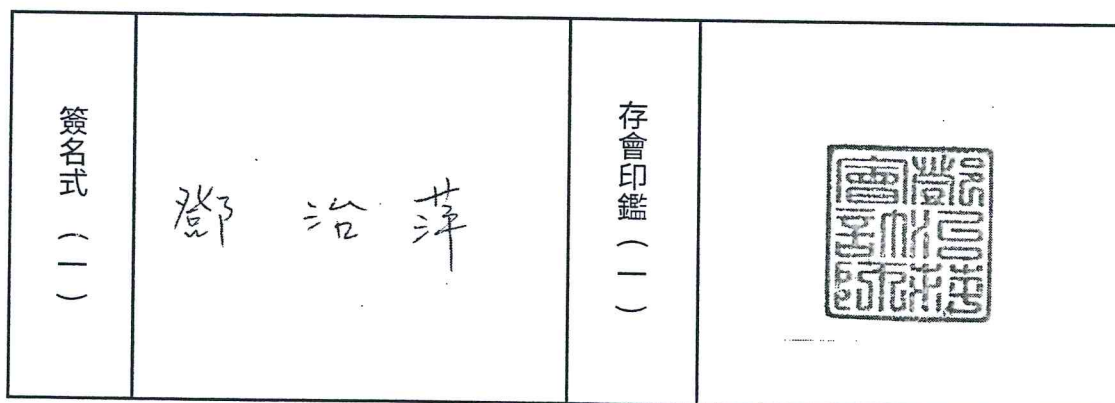 簽名式（一）
鄧治萍
存會印鑑（一）